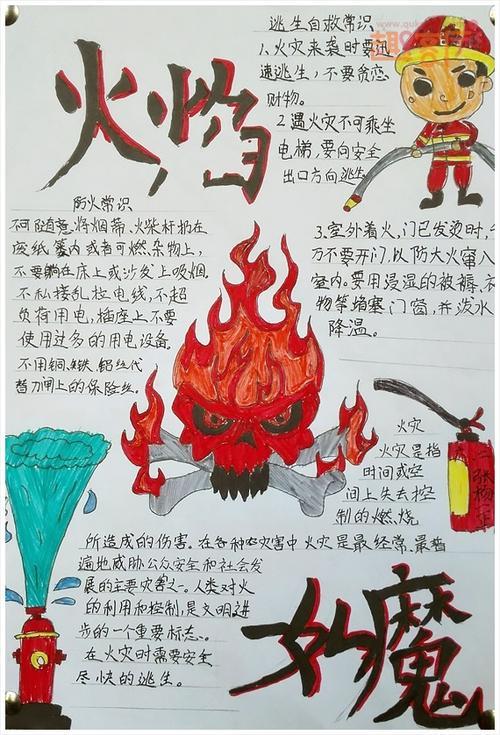 火焰
逃生自救常识
1.火灾来袭时要迅
速逃生,不要贪恋
财物。
2.遇火灾不可乘坐
电梯,要向安全
出口方向逃生
防火常识
不可随意将烟蒂、火柴杆扔在
废纸篓内或者可燃杂物上,
不要躺在床上或沙发上吸烟
不私接乱拉电线,不超
负荷用电,插座上不要
使用过多的用电设备
不用铜、铁、铝丝代
替刀闸上的保险丝。
3.室外着火,门已发烫时,千
万不要开门,以防大火窜入
室内。要用浸湿的被褥、衣
物等堵塞门窗,并泼水
降温。
火灾
火灾是指
时间或空
间上失去控
制的燃烧
所造成的伤害。在各种灾害中火灾是最经常、最普
遍地威胁公众安全和社会发
展的主要灾害之一。人类对火
的利用和控制,是文明进
步的一个重要标志、
在火灾时需要安全
尽快的逃生。
魔